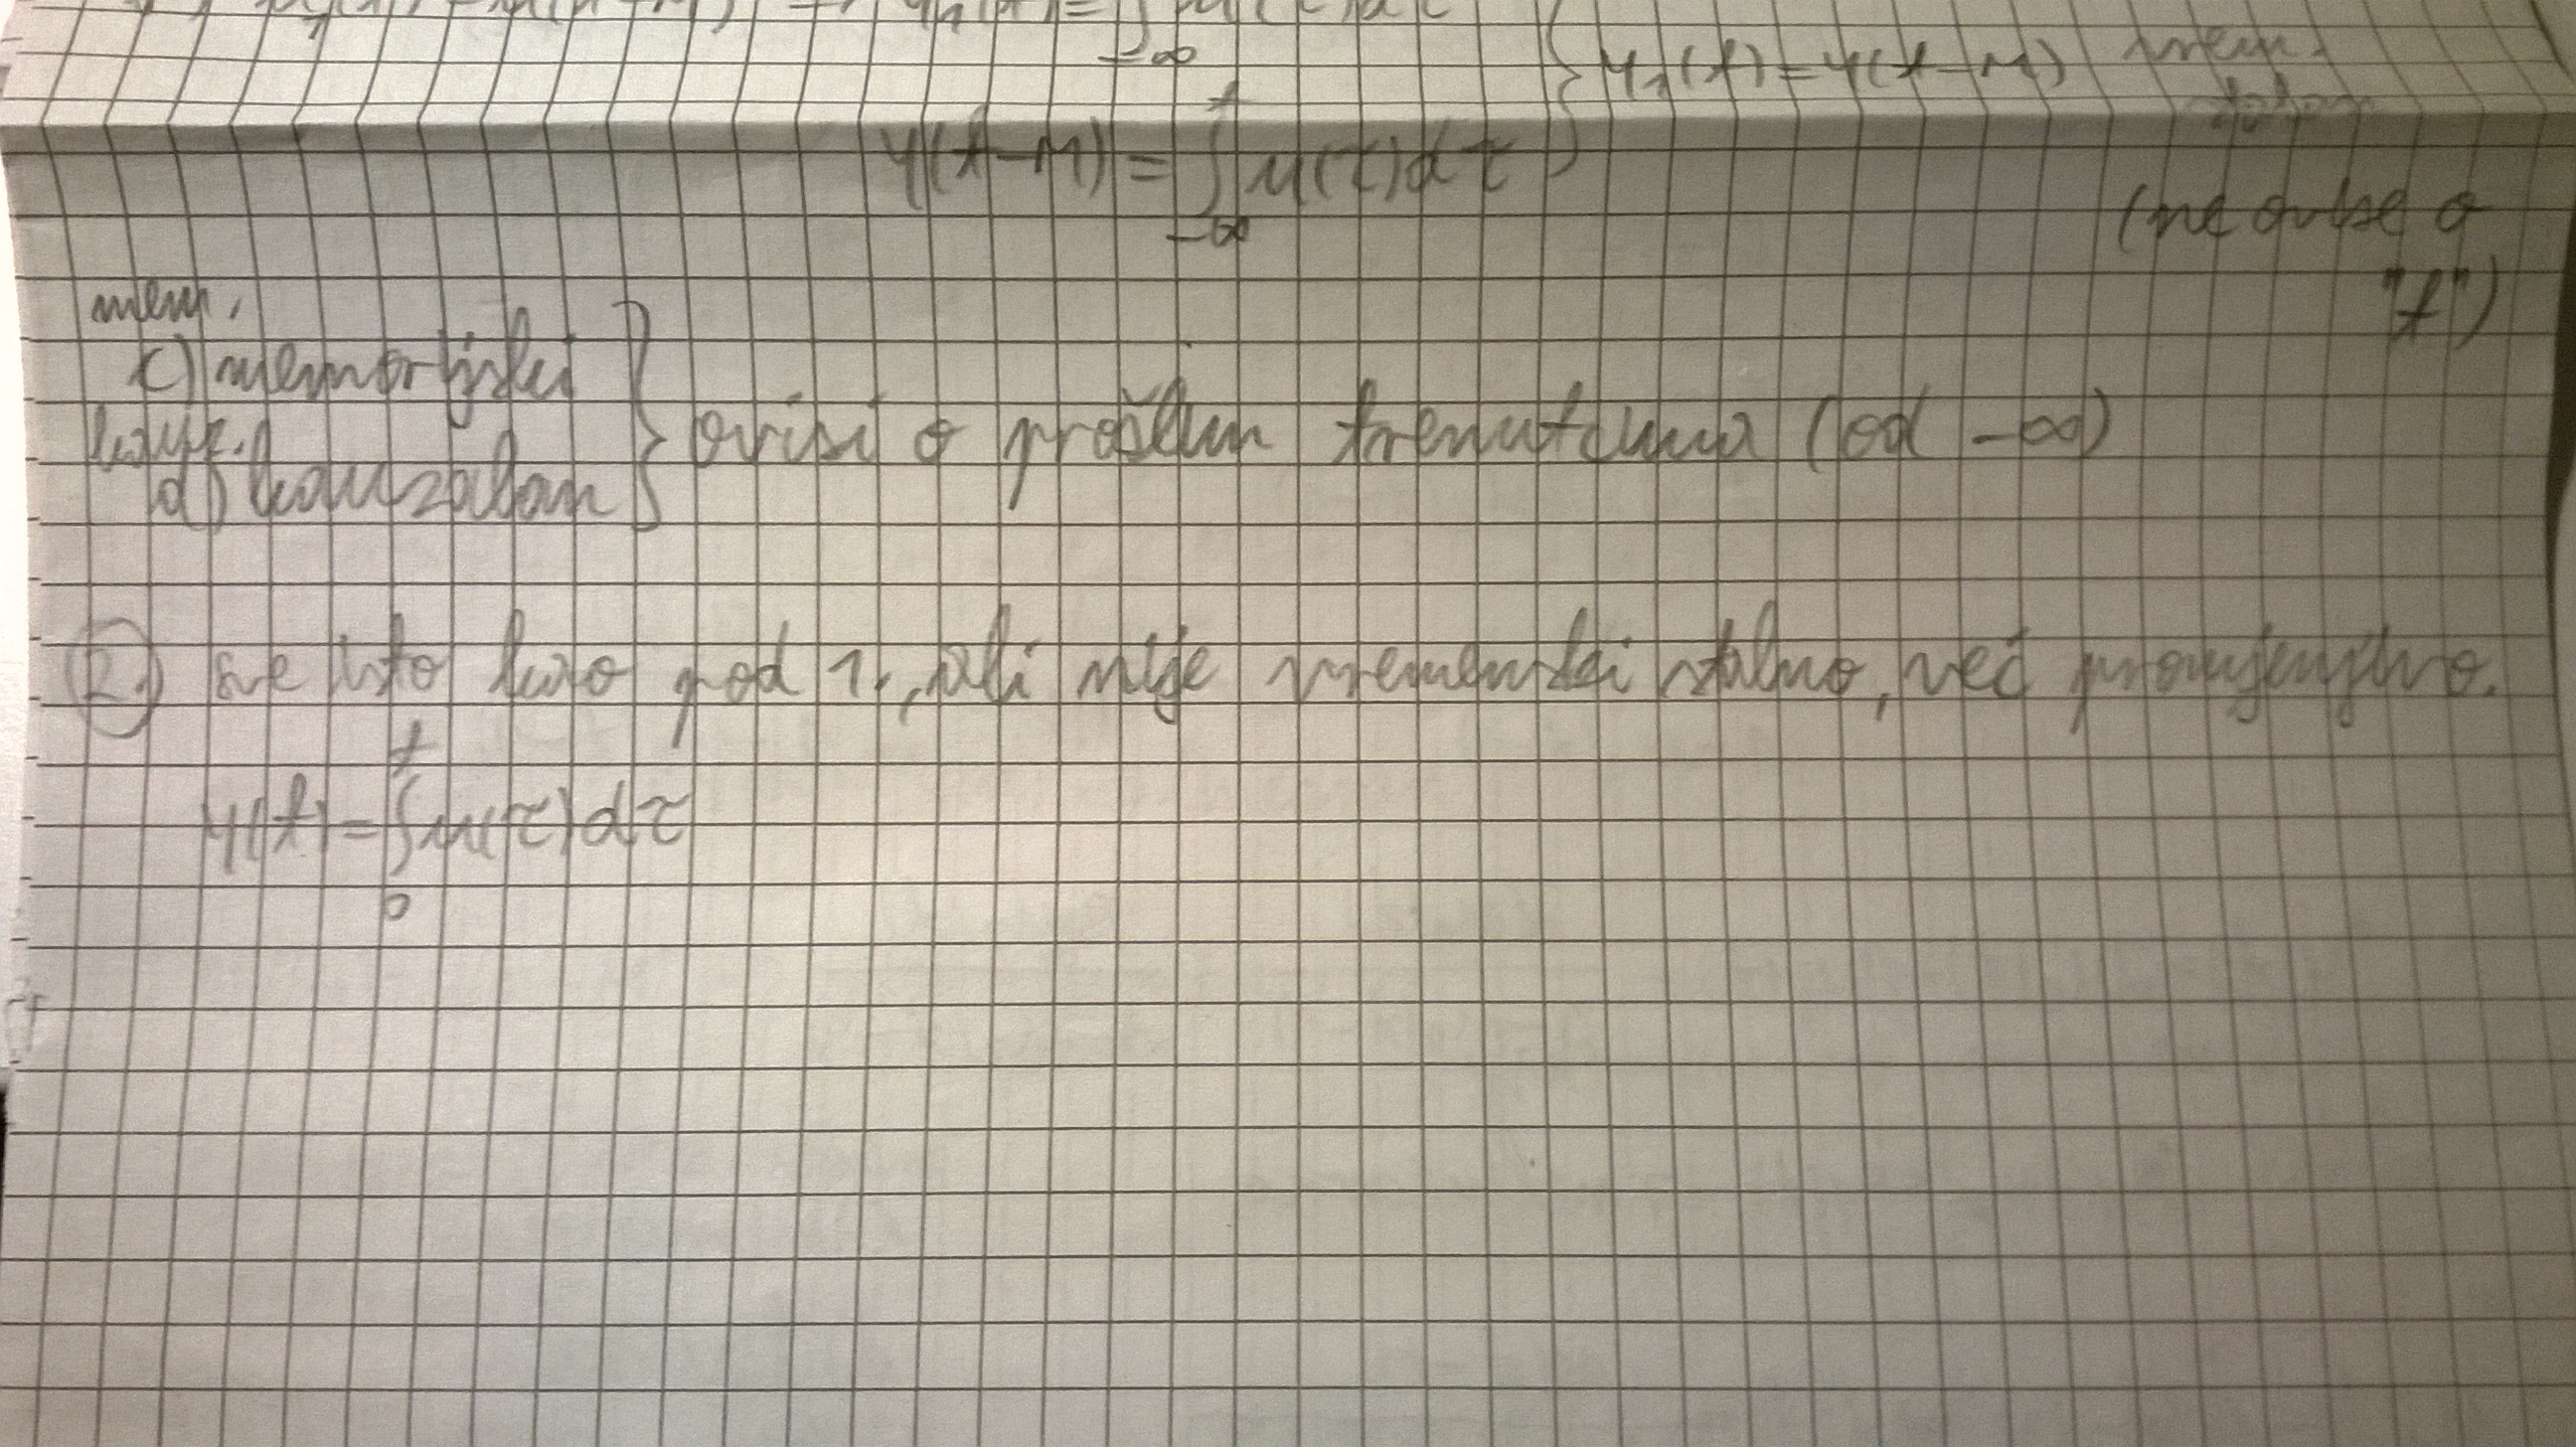 y₁(t) = y(t-M) vrem.
-∞
t
y(t-M) = ∫ u(τ)dτ }
-∞
(ne ovise o
"t")
mem.
c) memorijski
kauz.
d) kauzalan
} ovisi o prošlim trenutcima (od -∞)
2. sve isto kao pod 1., ali nije vremenski stalno, već promjenjivo.
t
y(t) = ∫ u(τ)dτ
0